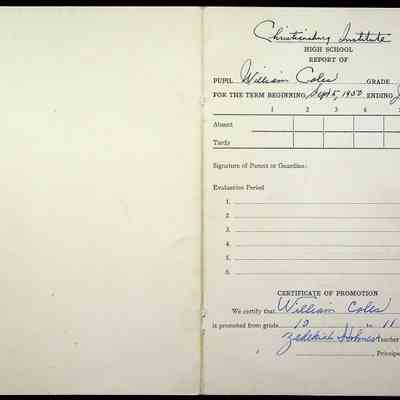 Christiansburg Institute
HIGH SCHOOL
REPORT OF
PUPIL William Coles GRADE
FOR THE TERM BEGINNING Sept 5, 1950 ENDING
1 2 3 4
Absent
Tardy
Signature of Parent or Guardian:
Evaluation Period
1.
2.
3.
4.
5.
6.
CERTIFICATE OF PROMOTION
We certify that William Coles
is promoted from grade 10 to 11
Zedekiah Holmes Teacher
Principal